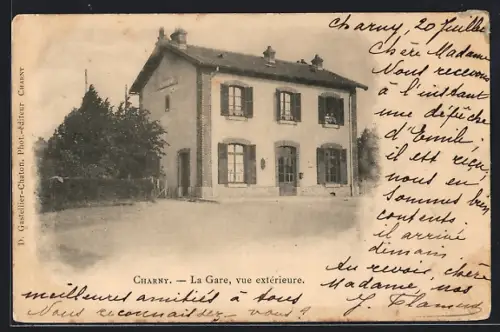 D. Gastellier-Chaton, Phot.-éditeur CHARNY
Charny, 20 Juillet
Chère Madame
Nous recevons
à l'instant
une dépêche
d'Emile,
il est reçu,
nous en
sommes bien
contents.
il arrive
demain.
Au revoir, chère
Madame, nos
CHARNY. — La Gare, vue extérieure.
meilleures amitiés à tous
Vous reconnaîtrez-vous?